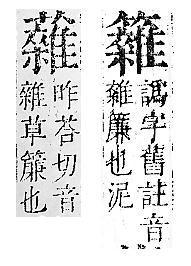 譌字舊註音
雜簾也泥
昨荅切音
雜草簾也